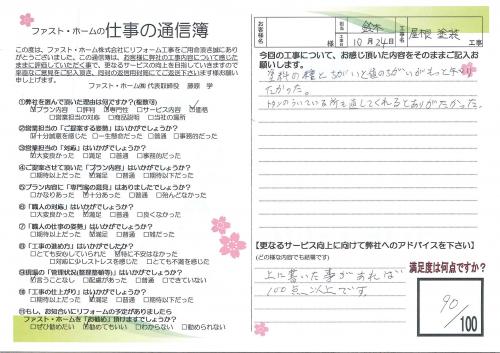 ファスト・ホームの 仕事の通信簿
この度は、ファスト・ホーム株式会社にリフォーム工事をご用命頂き誠にあり
がとうございました。この通信簿は、お客様に弊社の工事内容について感じた
ままに評価していただく事で、更なるサービスの向上を目指していきますので
率直なご意見をご記入頂き、同封の返信用封筒にてご返送下さいます様お願い
申し上げます。
ファスト・ホーム㈱ 代表取締役 藤原 学
①弊社を選んで頂いた理由は何ですか?(複数可)
☑プラン内容 □評判 ☑専門性 □サービス内容 ☑価格
□営業担当の対応 □商品説明 □当社の場所
②営業担当の「ご提案する姿勢」はいかがでしょうか?
☑十分誠意を感じた □一生懸命だった □普通 □事務的だった
③営業担当の「対応」はいかがでしょうか?
☑大変良かった □満足 □普通 □事務的だった
④ご提案させて頂いた「プラン内容」はいかがでしょうか?
□期待以上だった ☑満足 □普通 □雑だった
⑤プラン内容に「専門家の意見」はありましたでしょうか?
□かなりあった ☑十分あった □普通 □殆んどなかった
⑥「職人の対応」はいかがでしょうか?
□大変良かった ☑満足 □普通 □良くなかった
⑦「職人の仕事の姿勢」はいかがでしょうか?
□期待以上だった ☑満足 □普通 □期待以下だった
⑧「工事の進め方」はいかがでしたか?
□とても安心していられた ☑特に不安はなかった
□対応に少しストレスを感じた □とても不満を感じた
⑨現場の「管理状況(整理整頓等)」はいかがでしょうか?
☑言うことなし □配慮があった □普通 □できていない
⑩「工事の仕上がり」はいかがでしょうか?
□期待以上だった ☑満足 □普通 □期待以下だった
⑪もし、お知合いにリフォームの予定がありましたら
ファスト・ホームを「お勧め」頂けますでしょうか?
□ぜひ勧めたい ☑勧めてもいい □わからない □勧められない
お客様名 様 担当 鈴木 工事名 屋根 塗装 工事
10月24日
今回の工事について、お感じ頂いた内容をそのままご記入お
願いします。
塗料の種とちがいと値のちがいがもっと知り
たかった。
トタンのういている所も直してくれるとありがたかった。
【更なるサービス向上に向けて弊社へのアドバイスを下さい】
(どの様な内容でも結構です)
上に書いた事があれば
100点以上です。
満足度は何点ですか?
90/100